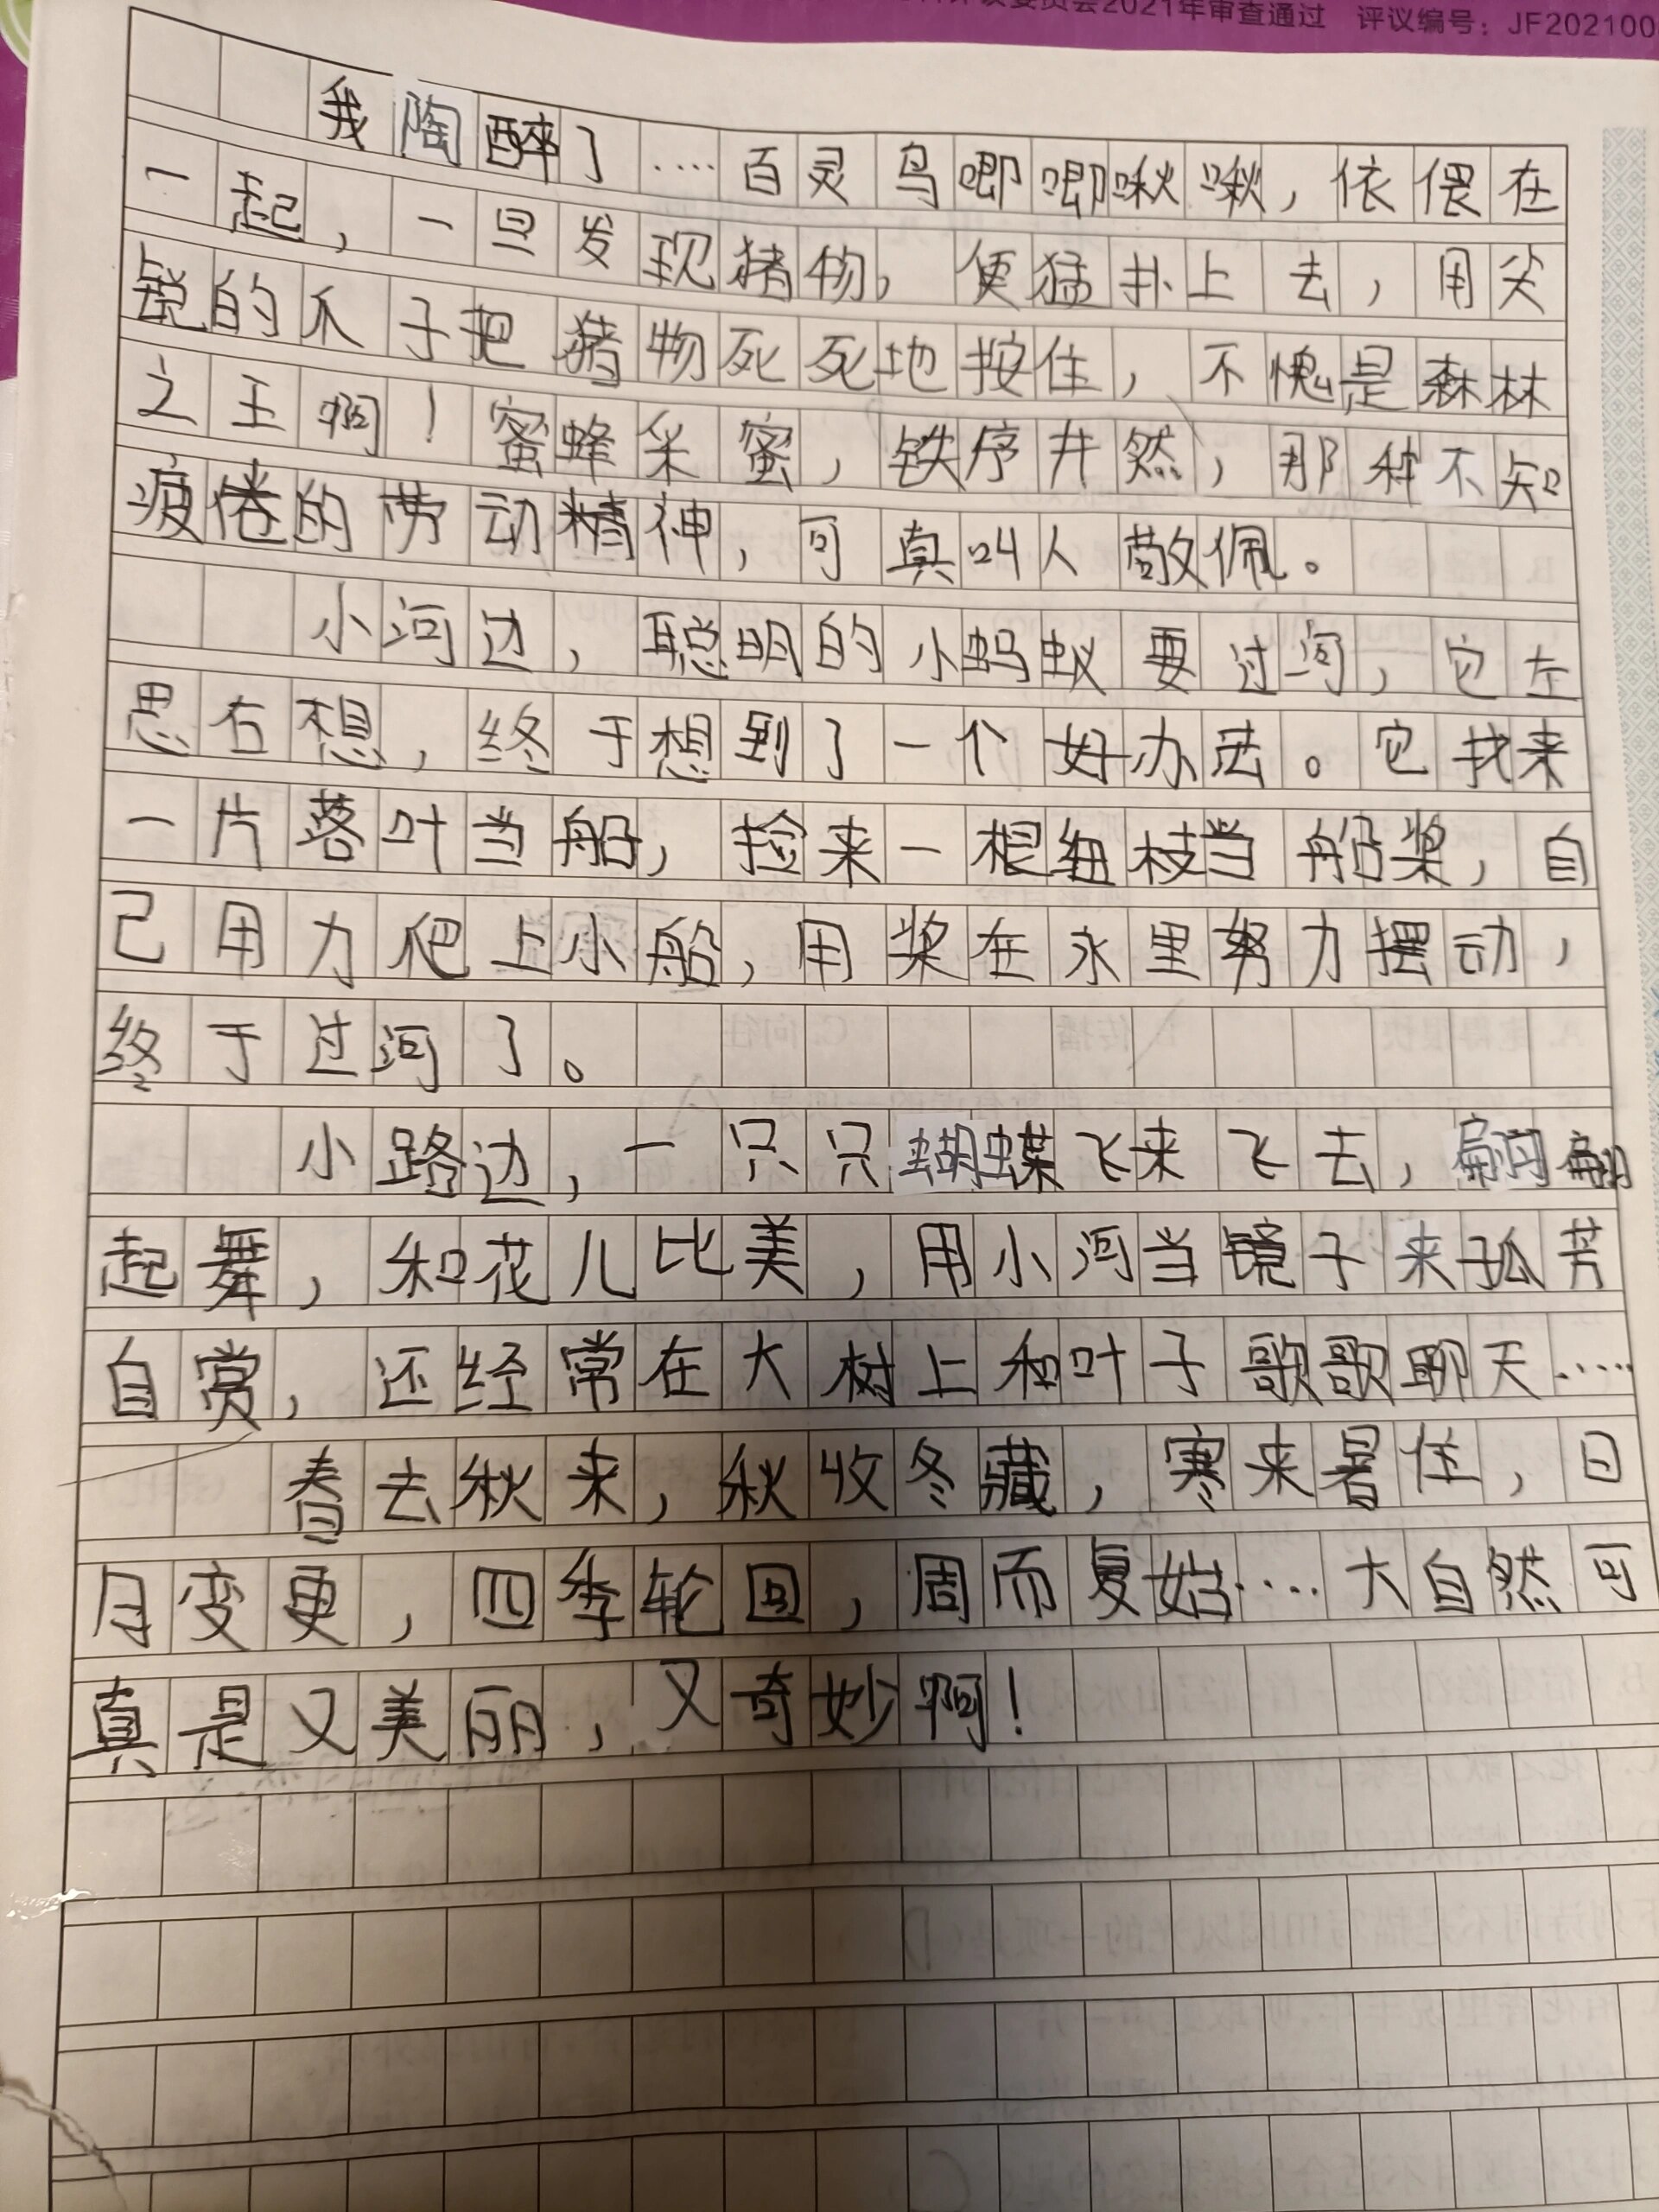 委员会2021年审查通过 评议编号：JF202100
我陶醉了……百灵鸟唧唧啾啾，依偎在
一起，一旦发现猪物，便猛扑上去，用尖
锐的爪子把猪物死死地按住，不愧是森林
之王啊！蜜蜂采蜜，铁序井然，那种不知
疲倦的劳动精神，可真叫人敬佩。
小河边，聪明的小蚂蚁要过河，它左
思右想，终于想到了一个好办法。它找来
一片落叶当船，捡来一根细枝当船桨，自
己用力爬上小船，用桨在水里努力摆动，
终于过河了。
小路边，一只只蝴蝶飞来飞去，翩翩
起舞，和花儿比美，用小河当镜子来孤芳
自赏，还经常在大树上和叶子歌歌聊天……
春去秋来，秋收冬藏，寒来暑往，日
月变更，四季轮回，周而复始……大自然可
真是又美丽，又奇妙啊！